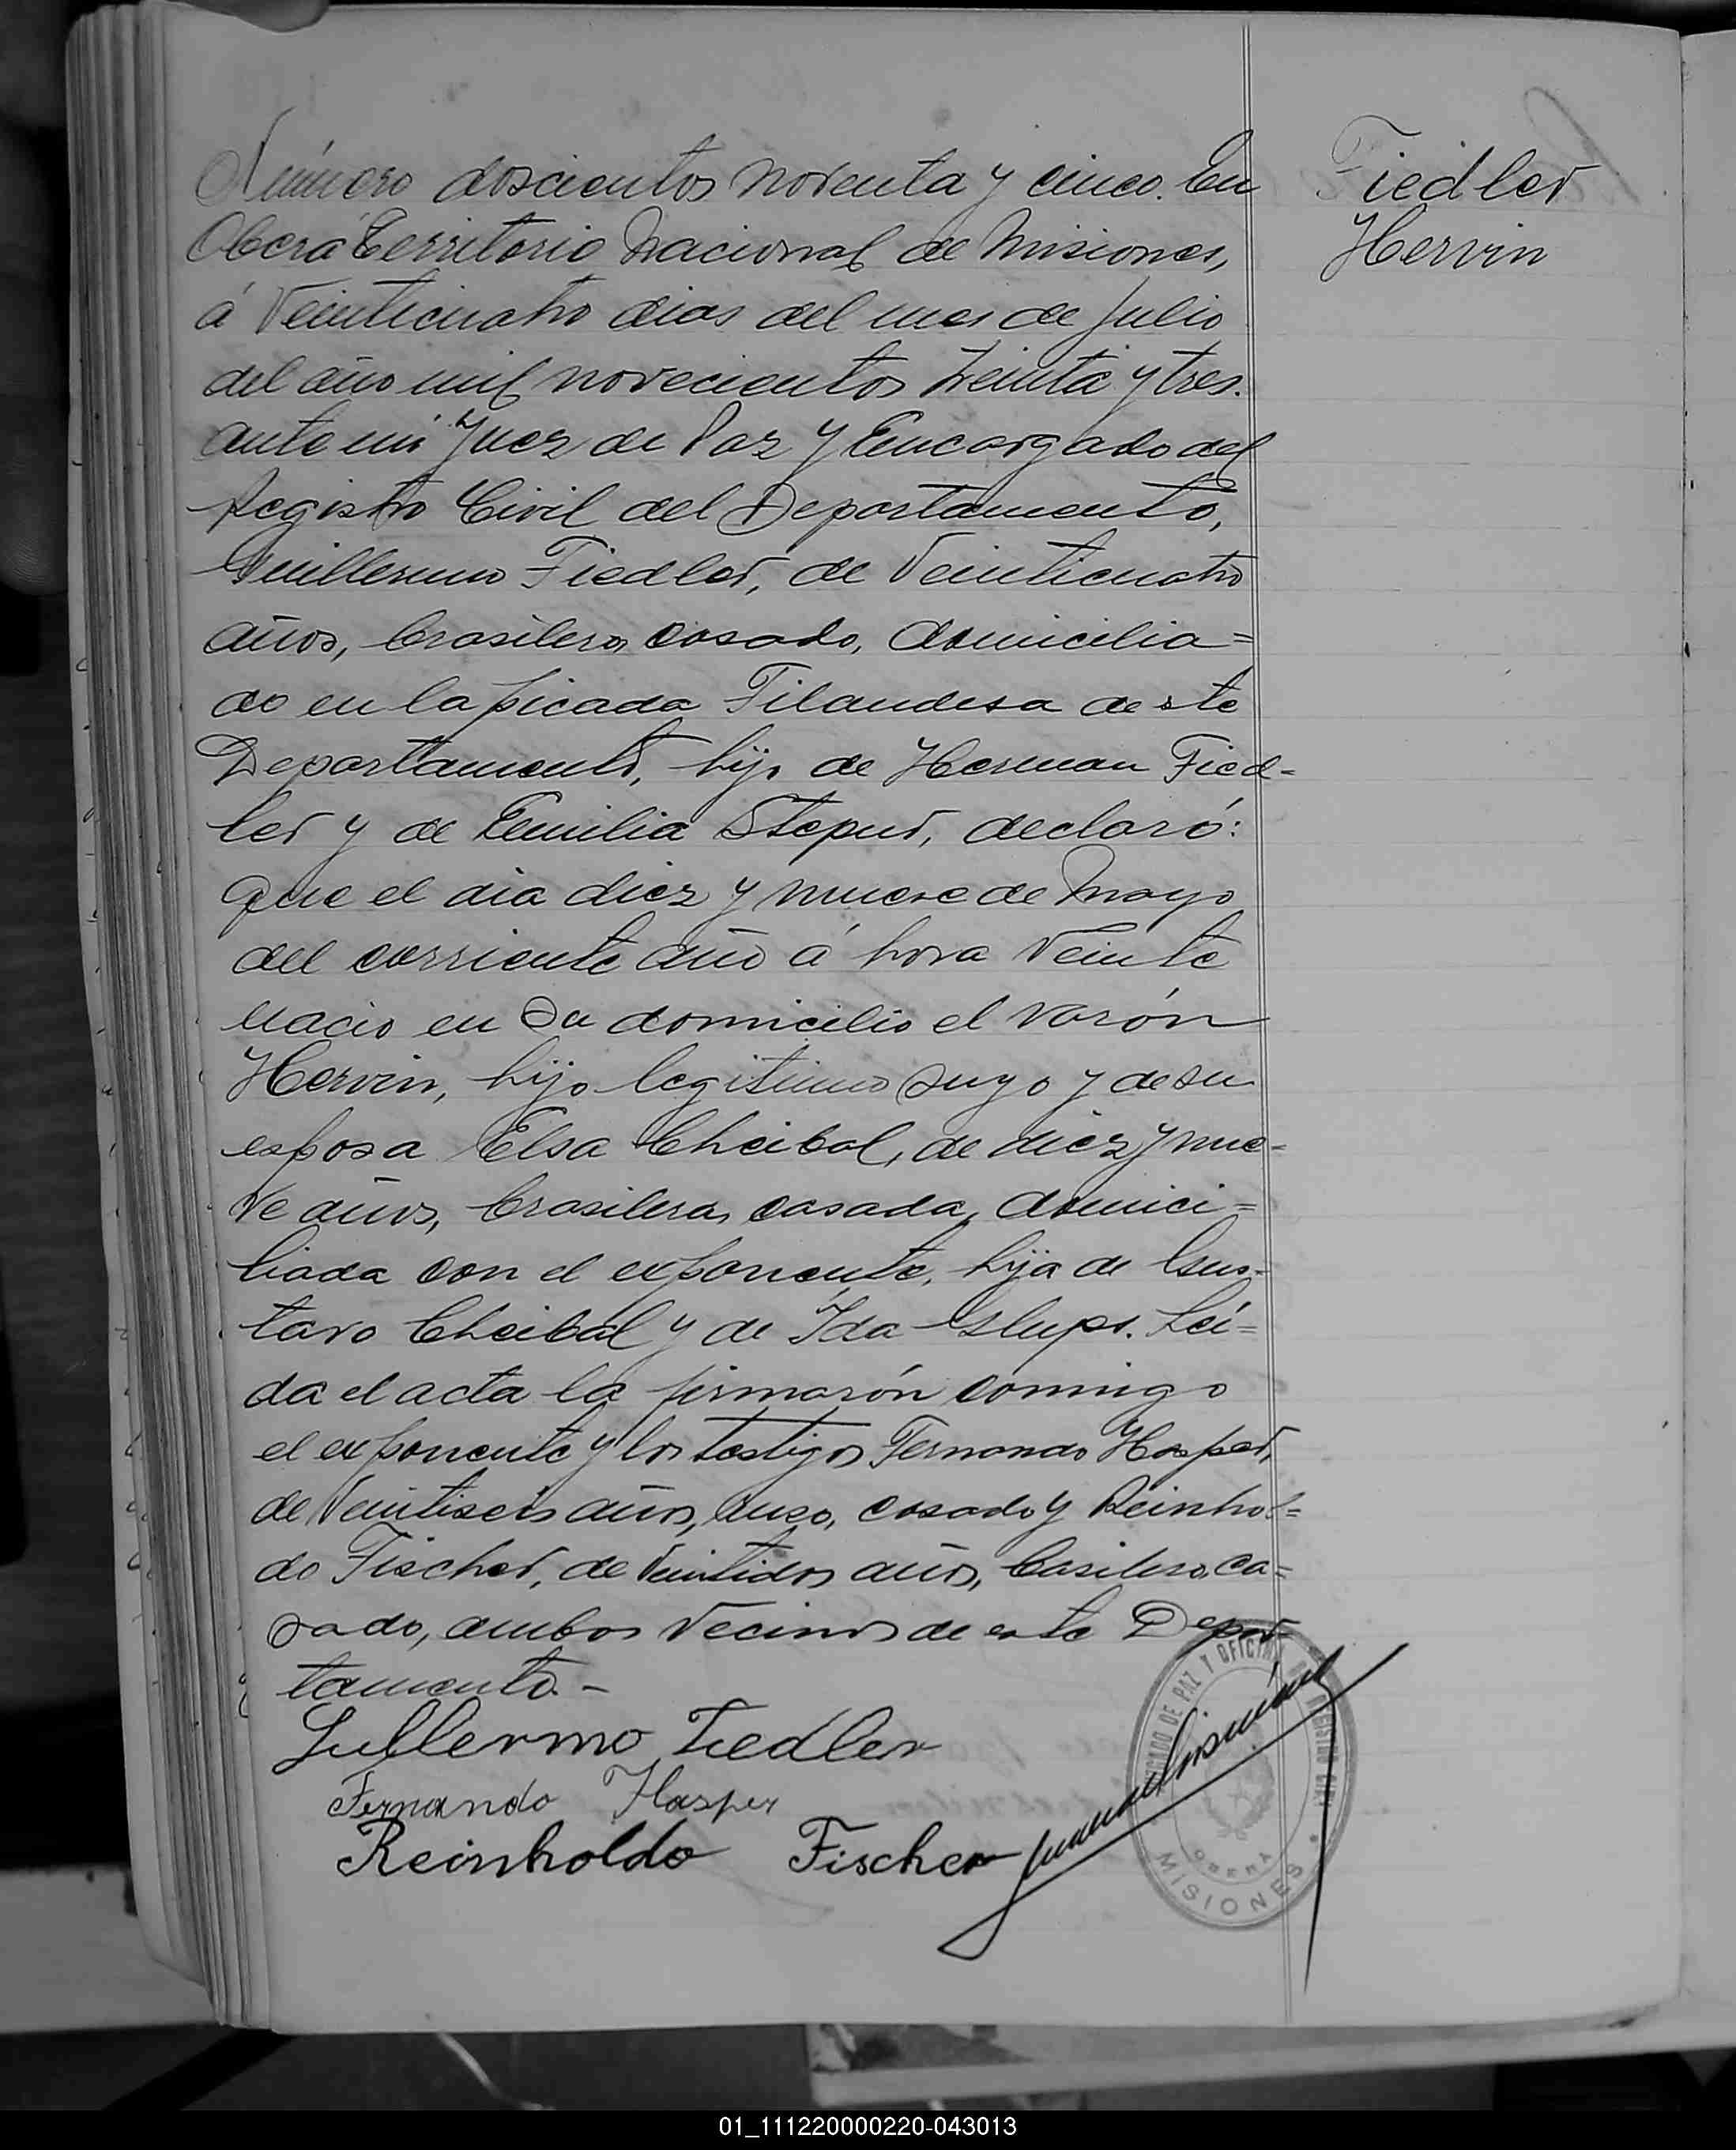 Número doscientos noventa y cinco. En
Oberá Territorio Nacional de Misiones,
á Veinticuatro dias del mes de Julio
del año mil novecientos treinta y tres.
ante mi Juez de Paz y Encargado del
Registro Civil del Departamento,
Guillermo Fiedler, de Veinticuatro
años, brasilero, casado, domicilia=
do en la picada Filandesa de ste
Departamento, hijo de Herman Fied-
ler y de Emilia Stepur, declaró:
que el dia diez y nueve de Mayo
del corriente año á hora Veinte
nacio en su domicilio el varón
Hervin, hijo legitimo suyo y de su
esposa Elsa Cheibal, de diez y nue-
ve años, brasilera, casada, domici=
liada con el exponente, hija de Gus-
tavo Cheibal y de Ida Leí=
da el acta la firmarón comigo
el exponente y los testigos Fernando Hasper,
de Veintiseis años, ruso, casado y Reinhol=
do Fischer, de Veintidos años, basilero, ca=
sado, ambos vecinos de este Depar
tamento.-
Fiedler
Hervin
Guillermo Fiedler
Fernando Hasper
Reinholdo Fischer
JUZGADO DE PAZ Y OFICINA DEL REGISTRO CIVIL
OBERÁ
MISIONES
01_111220000220-043013